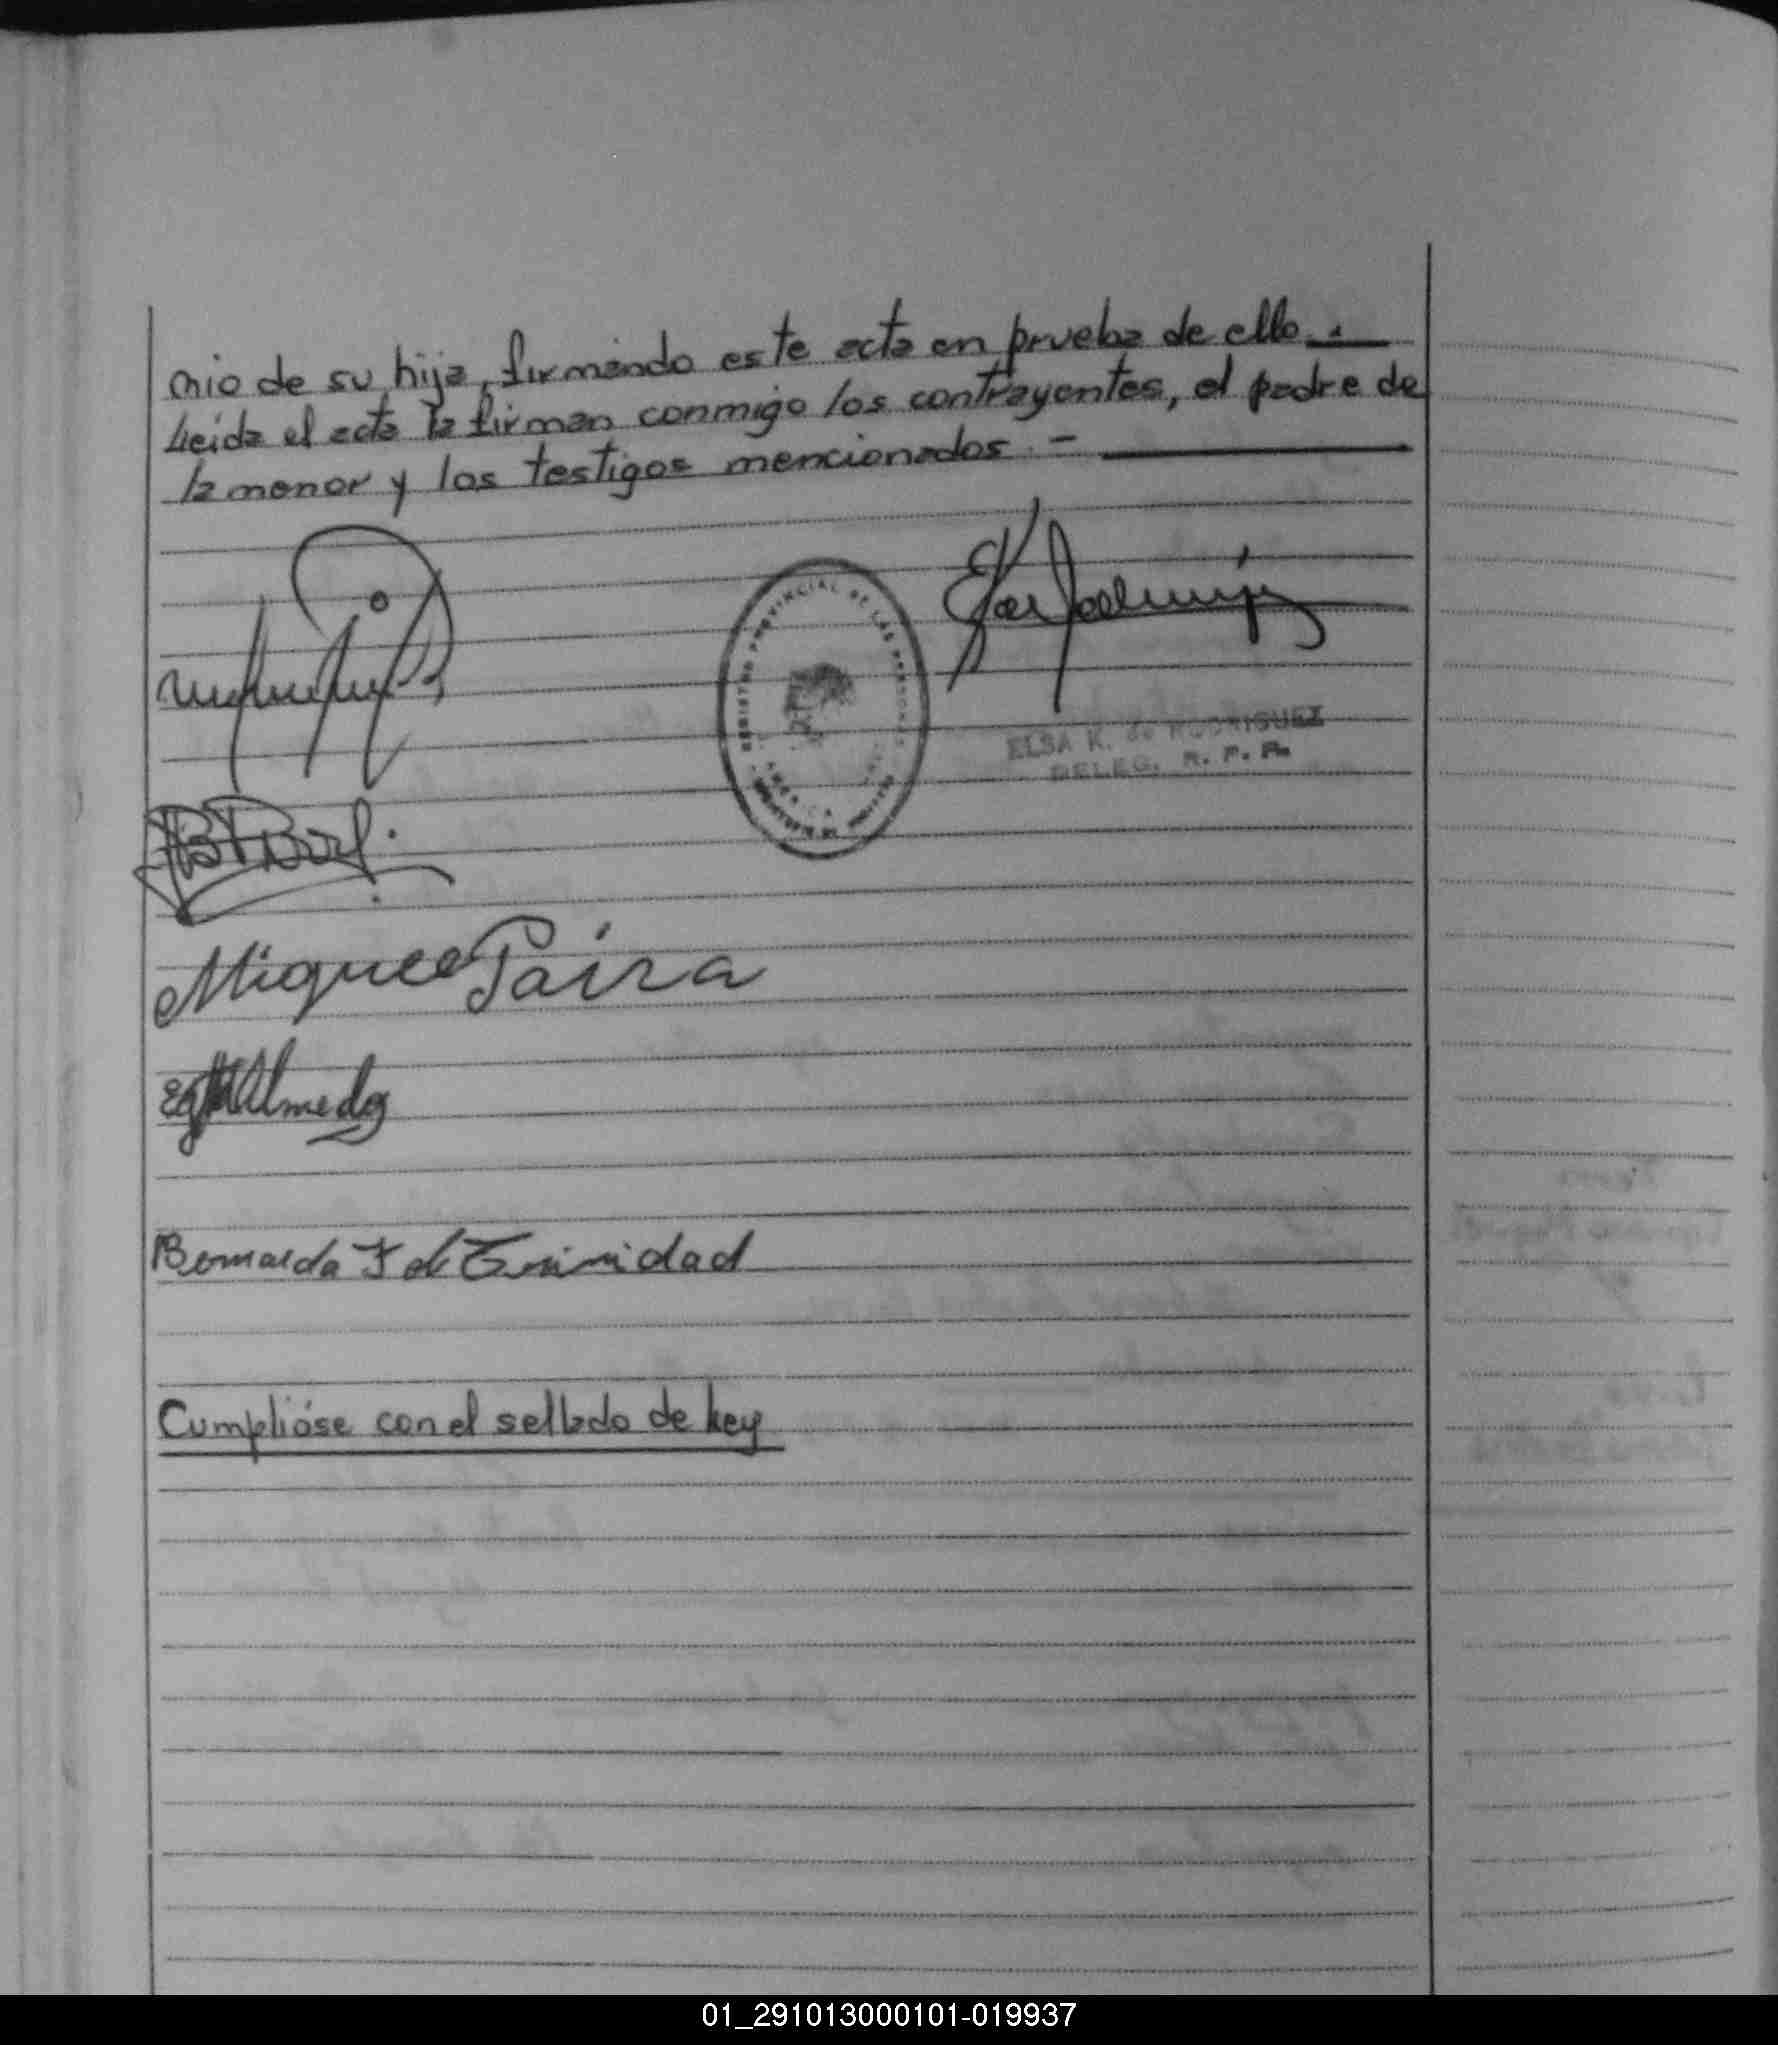 nio de su hija, firmando este acta en prueba de ello.-
Leida el acta la firman conmigo los contrayentes, el padre de
la menor y los testigos mencionados.-
REGISTRO PROVINCIAL DE LAS PERSONAS
ELSA K. de RODRIGUEZ
DELEG. R. P. P.
Miguel Paira
Almeda
Bernarda F de Trinidad
Cumplióse con el sellado de Ley
01_291013000101-019937